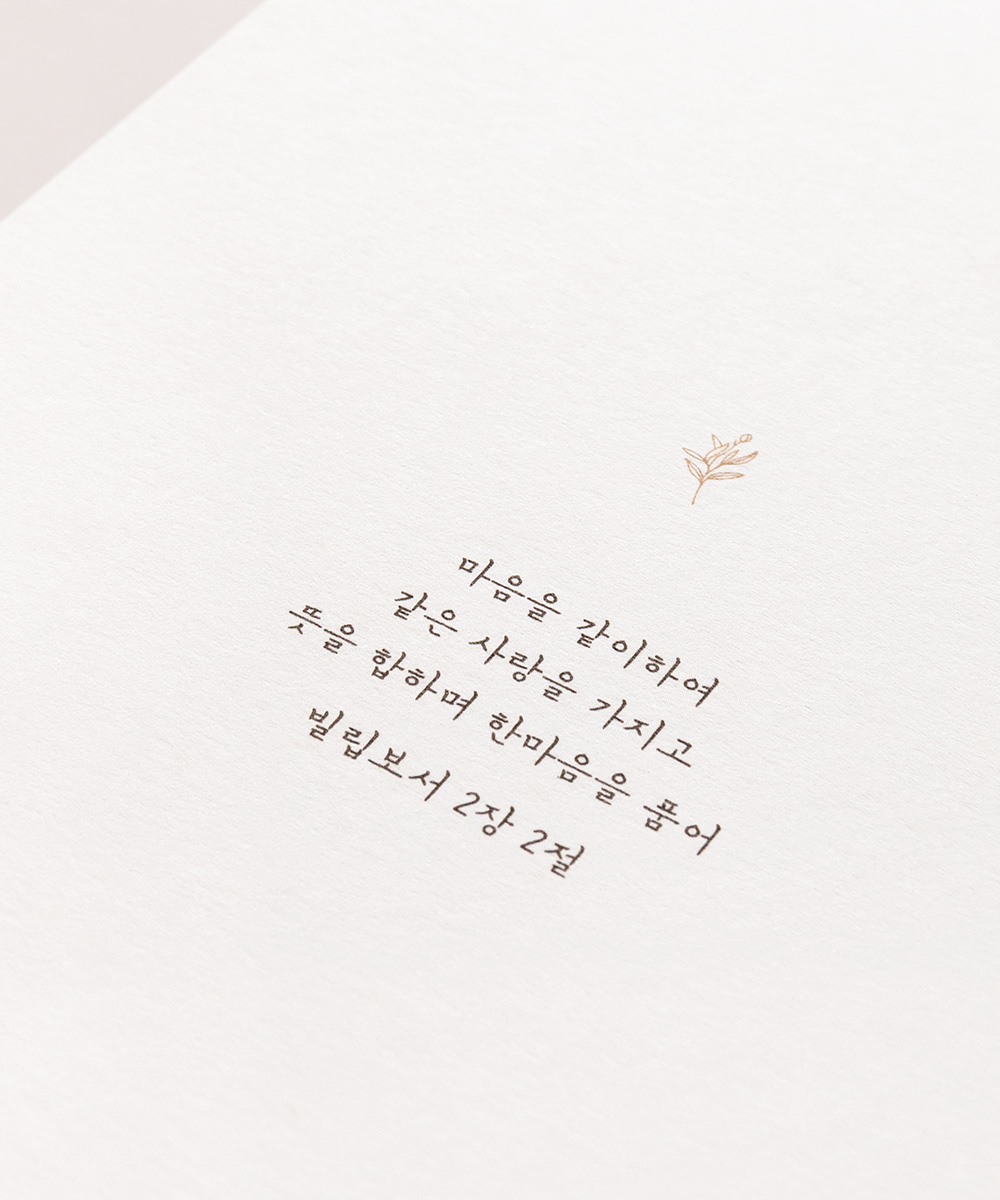 마음을 같이하여
같은 사랑을 가지고
뜻을 합하며 한마음을 품어
빌립보서 2장 2절